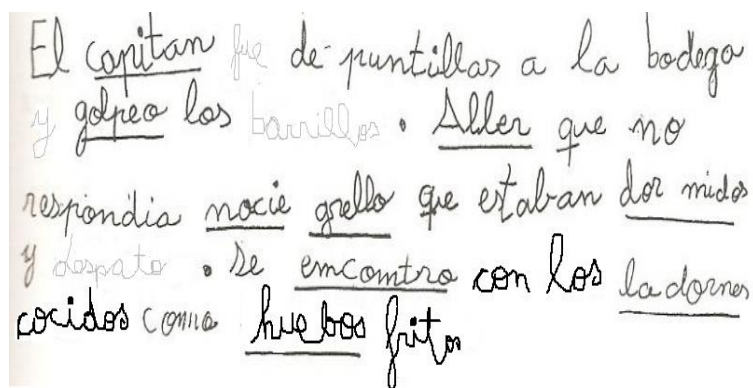 El capitan fue de puntillas a la bodega
y golpeo los barrillos. Aller que no
respondia nocie grello que estaban dor midos
y despato. se emcomtro con los ladornes
cocidos como huebos fritos